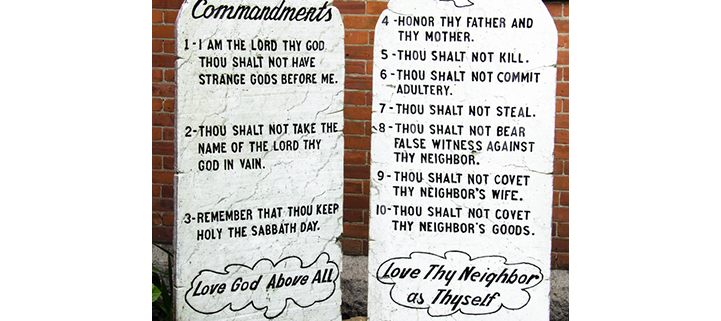 Commandments
1-I AM THE LORD THY GOD
THOU SHALT NOT HAVE
STRANGE GODS BEFORE ME.
2-THOU SHALT NOT TAKE THE
NAME OF THE LORD THY
GOD IN VAIN.
3-REMEMBER THAT THOU KEEP
HOLY THE SABBATH DAY.
Love God Above All
4-HONOR THY FATHER AND
THY MOTHER.
5-THOU SHALT NOT KILL.
6-THOU SHALT NOT COMMIT
ADULTERY.
7-THOU SHALT NOT STEAL.
8-THOU SHALT NOT BEAR
FALSE WITNESS AGAINST
THY NEIGHBOR.
9-THOU SHALT NOT COVET
THY NEIGHBOR'S WIFE.
10-THOU SHALT NOT COVET
THY NEIGHBOR'S GOODS.
Love Thy Neighbor
as Thyself